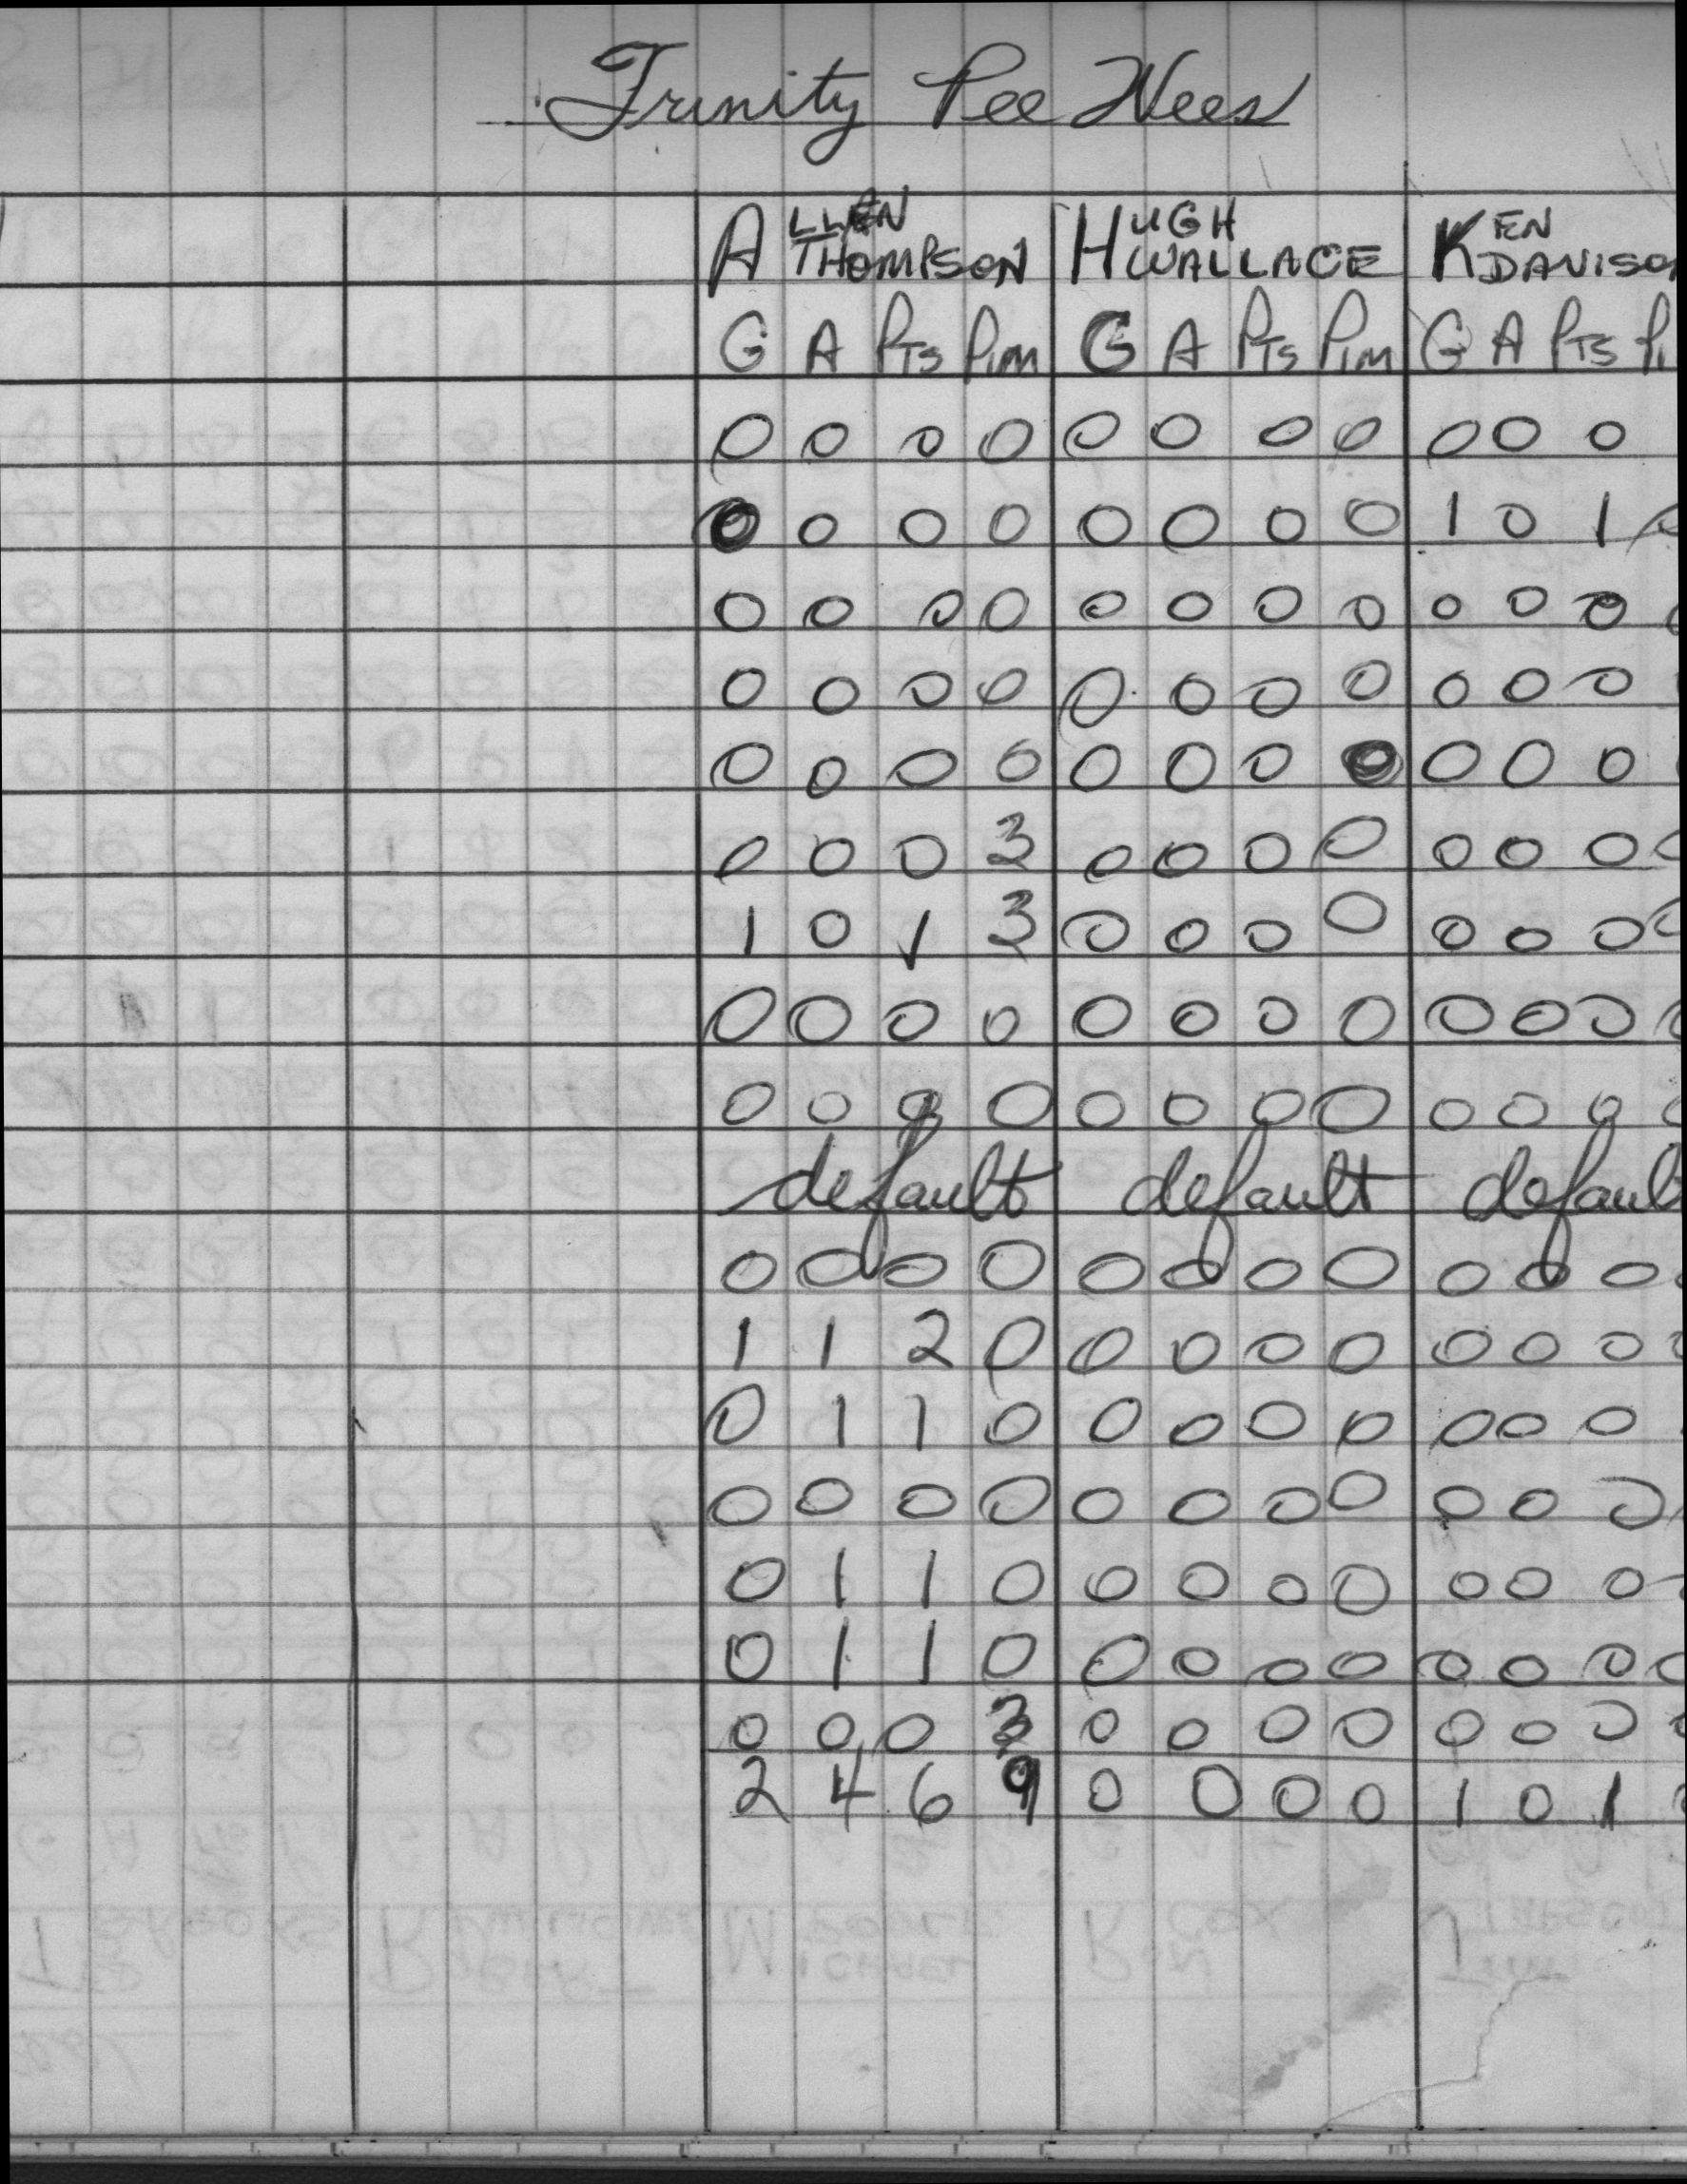 Trinity Pee Wees
ALLEN THOMPSON HUGH WALLACE KEN DAVISON
G A PTS PIM G A PTS PIM G A PTS PI
0 0 0 0 0 0 0 0 0 0 0
0 0 0 0 0 0 0 0 1 0 1 0
0 0 0 0 0 0 0 0 0 0 0 0
0 0 0 0 0 0 0 0 0 0 0
0 0 0 0 0 0 0 0 0 0 0
0 0 0 3 0 0 0 0 0 0 0 0
1 0 1 3 0 0 0 0 0 0 0 0
0 0 0 0 0 0 0 0 0 0 0 0
0 0 0 0 0 0 0 0 0 0 0 0
default default defaul
0 0 0 0 0 0 0 0 0 0 0
1 1 2 0 0 0 0 0 0 0 0 0
0 1 1 0 0 0 0 0 0 0 0
0 0 0 0 0 0 0 0 0 0 0
0 1 1 0 0 0 0 0 0 0 0
0 1 1 0 0 0 0 0 0 0 0 0
0 0 0 3 0 0 0 0 0 0 0 0
2 4 6 9 0 0 0 0 1 0 1 0